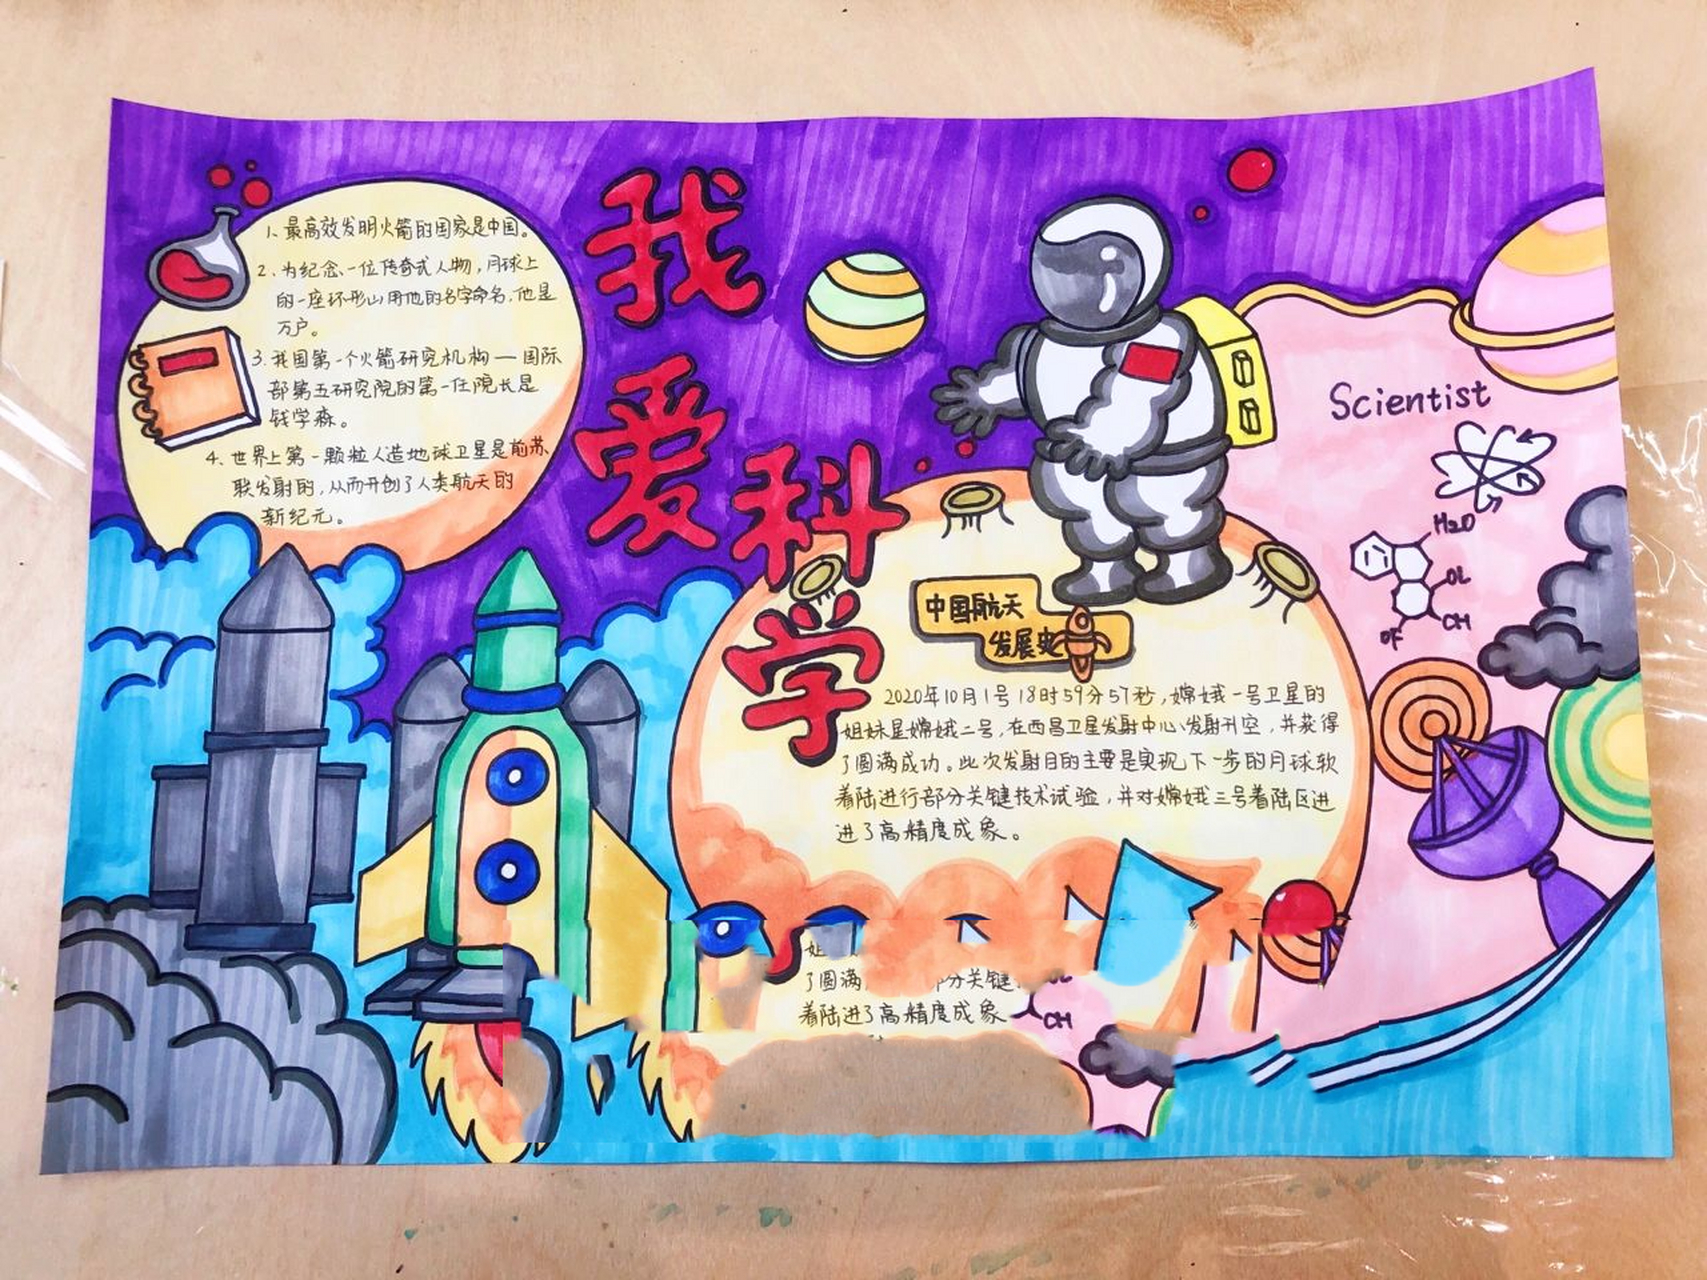 我爱科学
1、最高效发明火箭的国家是中国。
2、为纪念一位传奇式人物，月球上
的一座环形山用他的名字命名，他是
万户。
3、我国第一个火箭研究机构—国际
部第五研究院的第一任院长是
钱学森。
4、世界上第一颗粒人造地球卫星是前苏
联发射的，从而开创了人类航天的
新纪元。
Scientist
H2O
OL
CH
OF
中国航天
发展史
2020年10月1号18时59分57秒，嫦娥一号卫星的
姐妹星嫦娥二号，在西昌卫星发射中心发射升空，并获得
了圆满成功。此次发射目的主要是实现下一步的月球软
着陆进行部分关键技术试验，并对嫦娥三号着陆区进
进了高精度成象。
了圆满
部分关键
着陆进了高精度成象
CH